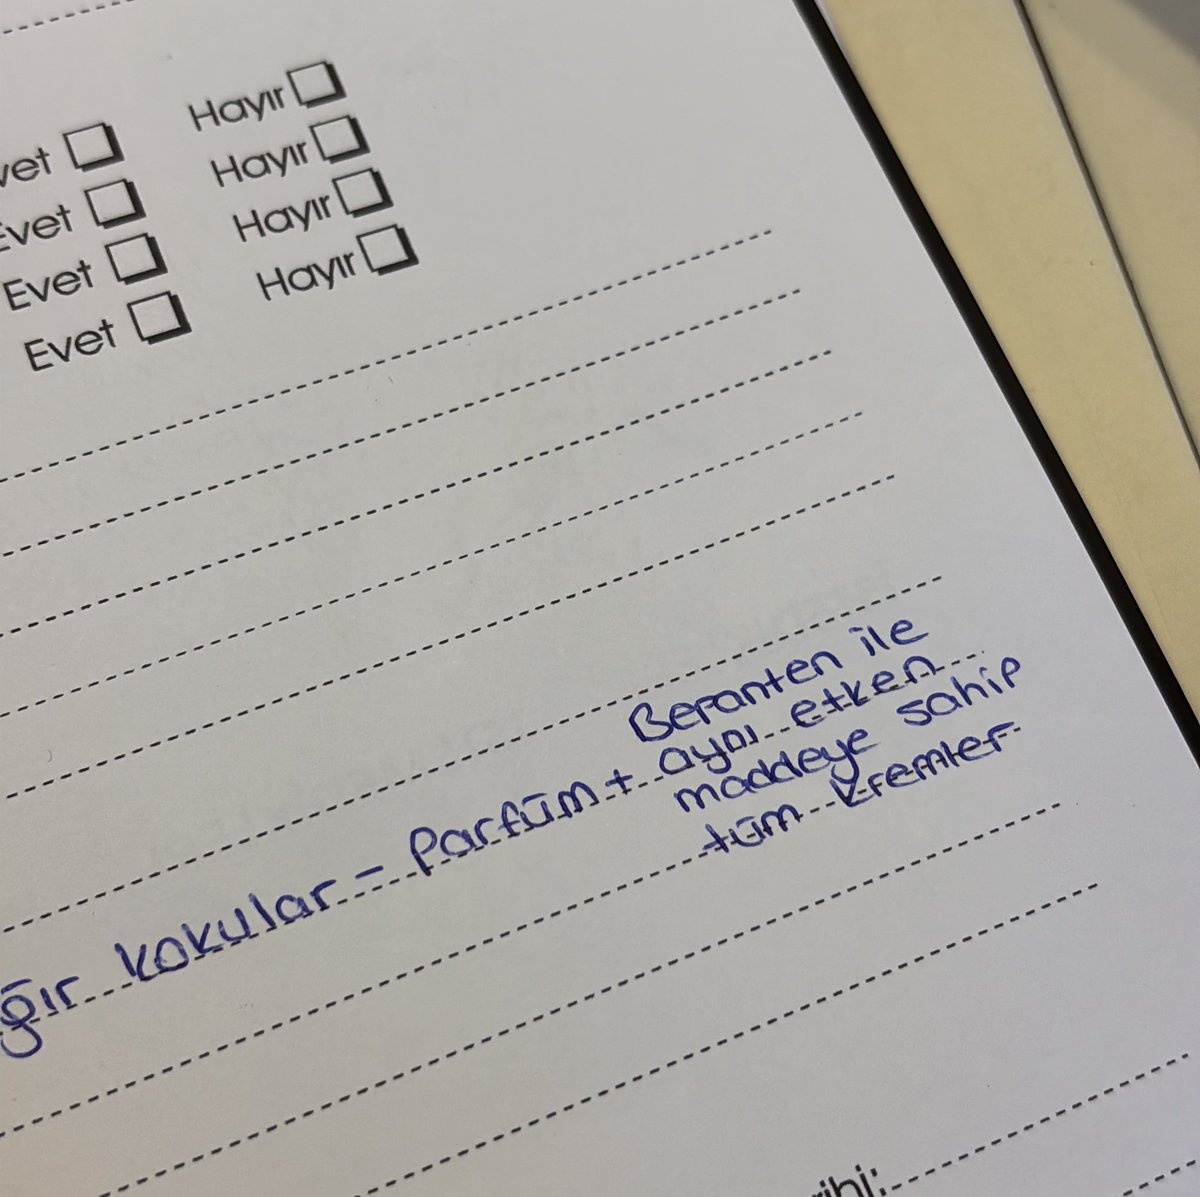 Hayır
vet Hayır
Evet Hayır
Evet Hayır
Evet
Bepanten ile
aynı etken
maddeye sahip
tüm kremler
ğır kokular - Parfüm +
rihi: